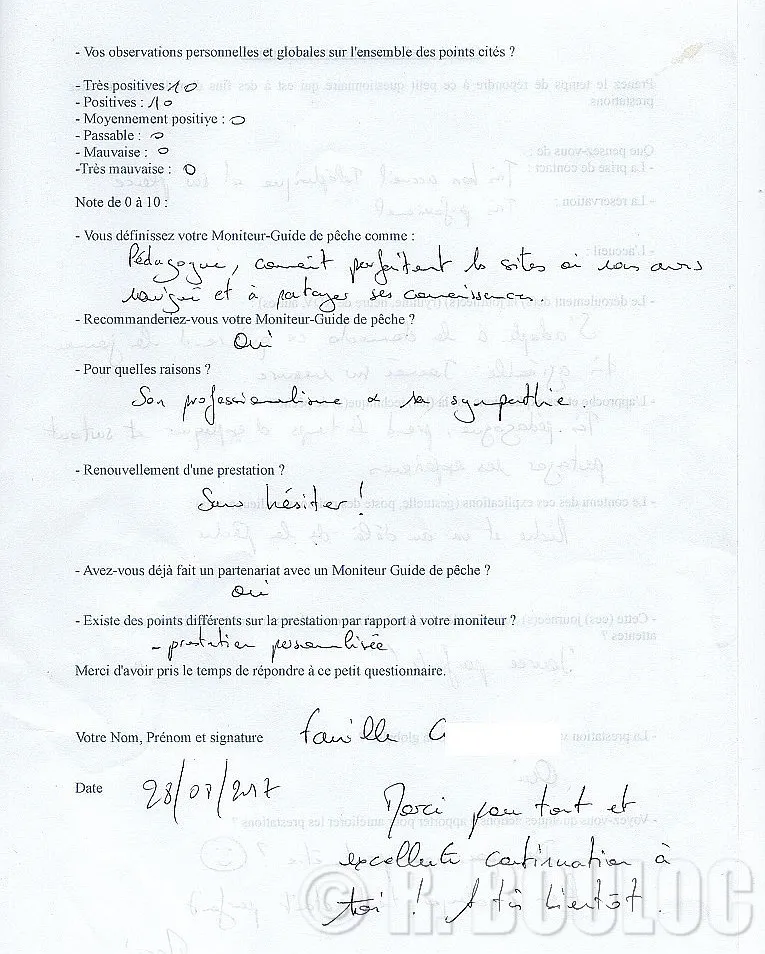 - Vos observations personnelles et globales sur l'ensemble des points cités ?
- Très positives : 10
- Positives : 10
- Moyennement positive : 0
- Passable : 0
- Mauvaise : 0
-Très mauvaise : 0
Note de 0 à 10 :
- Vous définissez votre Moniteur-Guide de pêche comme :
Pédagogue, connaît parfaitement les sites où nous avons
navigué et à partager ses connaissances.
- Recommanderiez-vous votre Moniteur-Guide de pêche ?
Oui
- Pour quelles raisons ?
Son professionnalisme & sa sympathie.
- Renouvellement d'une prestation ?
Sans hésiter !
- Avez-vous déjà fait un partenariat avec un Moniteur Guide de pêche ?
oui
- Existe des points différents sur la prestation par rapport à votre moniteur ?
- prestation personnalisée
Merci d'avoir pris le temps de répondre à ce petit questionnaire.
Votre Nom, Prénom et signature famille G
Date 28/07/2017
Merci pour tout et
excellente continuation à
toi ! A très bientôt.
© R.BOULOC